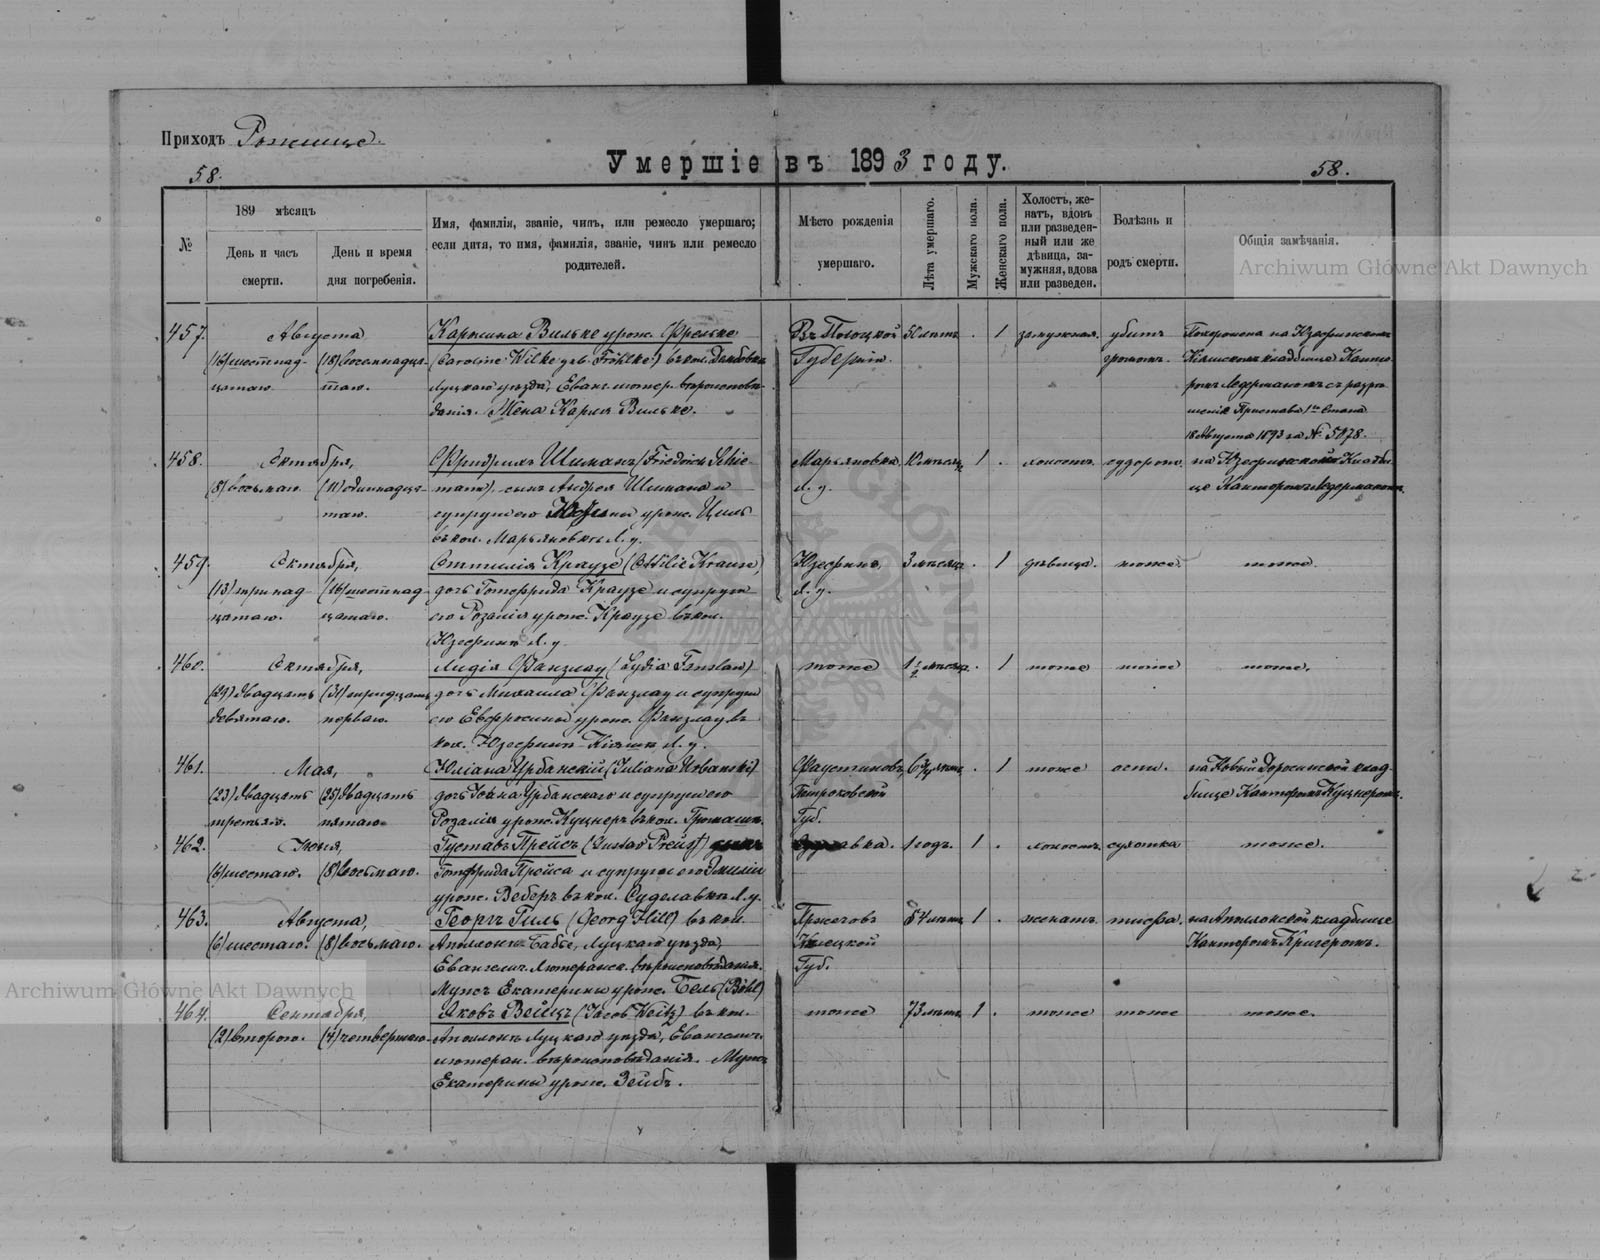 Приходъ Рожище.
Умершіе въ 1893 году.
58.
58.
№
189 мѣсяцъ
День и часъ смерти.
День и время дня погребенія.
Имя, фамилія, званіе, чинъ, или ремесло умершаго;
если дитя, то имя, фамилія, званіе, чинъ или ремесло
родителей.
Мѣсто рожденія
умершаго.
Лѣта умершаго.
Мужскаго пола.
Женскаго пола.
Холостъ, же-
натъ, вдовъ
или разведен-
ный или же
дѣвица, за-
мужняя, вдова
или разведен.
Болѣзнь и
родъ смерти.
Общія замѣчанія.
Archiwum Główne Akt Dawnych
457.
Августа
(16) шестнад-
цатаго
(18) восемнадца-
таго.
Каролина Вильке урож. Фрелке
(Caroline Wilke geb. Fröhlke) въ кол. Домбовка
Луцкаго уѣзда, Еванг. лютер. вѣроисповѣ-
данія. Жена Карла Вильке.
Въ Полоцкой
Губерніи
50 лѣтъ
1
замужняя.
убитъ
громомъ.
Похоронена на Юзефинскомъ
кладбищѣ Канто-
ромъ Ледерманомъ съ разрѣ-
шенія Пристава 1го Стана
18 Августа 1893 за № 5078.
458.
Октября,
(8) восьмаго
(11) одиннадца-
таго.
Фридрихъ Шиманъ (Friedrich Schie-
mann), сынъ Андрея Шимана и
супруги его урож. Циль
въ кол. Марьяновкѣ Л. у.
Марьяновка
Л. у.
10 мѣсяц.
1
холостъ.
судороги.
на Юзефинской Кладби-
ще Канторомъ Ледерманомъ.
459.
Октября,
(13) тринад-
цатаго.
(16) шестнад-
цатаго.
Оттилія Краузе (Ottilie Krause)
дочь Готфрида Краузе и супруги
его Розаліи урож. Краузе въ кол.
Юзефинѣ Л. у.
Юзефинъ
Л. у.
3 мѣсяца
1
дѣвица.
тоже.
тоже.
460.
Октября,
(29) двадцать
девятаго.
(31) тридцать
перваго.
Лидія Фанзлау (Lydia Fanslau)
дочь Михаила Фанзлау и супруги
его Ефросиньи урож. Фанзлау въ
кол. Юзефинъ Л. у.
тоже
1½ мѣсяц.
1
тоже
тоже
тоже.
461.
Мая,
(23) двадцать
третьяго.
(25) двадцать
пятаго.
Юліана Урбанскій (Juliana Urbanski)
дочь Урбанскаго и супруги его
Розаліи урож. Куцнеръ въ кол.
Фаустиновъ,
Петроковской
Губ.
1
тоже
оспы.
на Новый кладъ-
бище Канторомъ Куцнеромъ.
462.
Іюня,
(6) шестаго.
(8) восьмаго.
Густавъ Прейсъ (Gustav Preuß) сынъ
Готфрида Прейса и супруги его Эмиліи
урож. Веберъ въ кол. Суделавкѣ Л. у.
1 годъ.
1
холостъ.
сухотка
тоже.
463.
Августа,
(6) шестаго.
(8) восьмаго.
Георгъ Гиль (Georg Hill) въ кол.
Луцкаго уѣзда,
Евангелич. Лютеранск. вѣроисповѣданія.
Мужъ Екатерины урож. Бель (Böhl)
Губ.
54 лѣтъ
1
женатъ.
тифа.
на Аполонской кладбище
Канторомъ Кригеромъ.
Archiwum Główne Akt Dawnych
464.
Сентября,
(2) втораго.
(4) четвертаго.
Яковъ Вейцъ (Jacob Weitz) въ кол.
Луцкаго уѣзда, Евангелич.
лютеран. вѣроисповѣданія. Мужъ
Екатерины урож. Зейбъ.
тоже
73 лѣтъ
1
тоже
тоже
тоже.